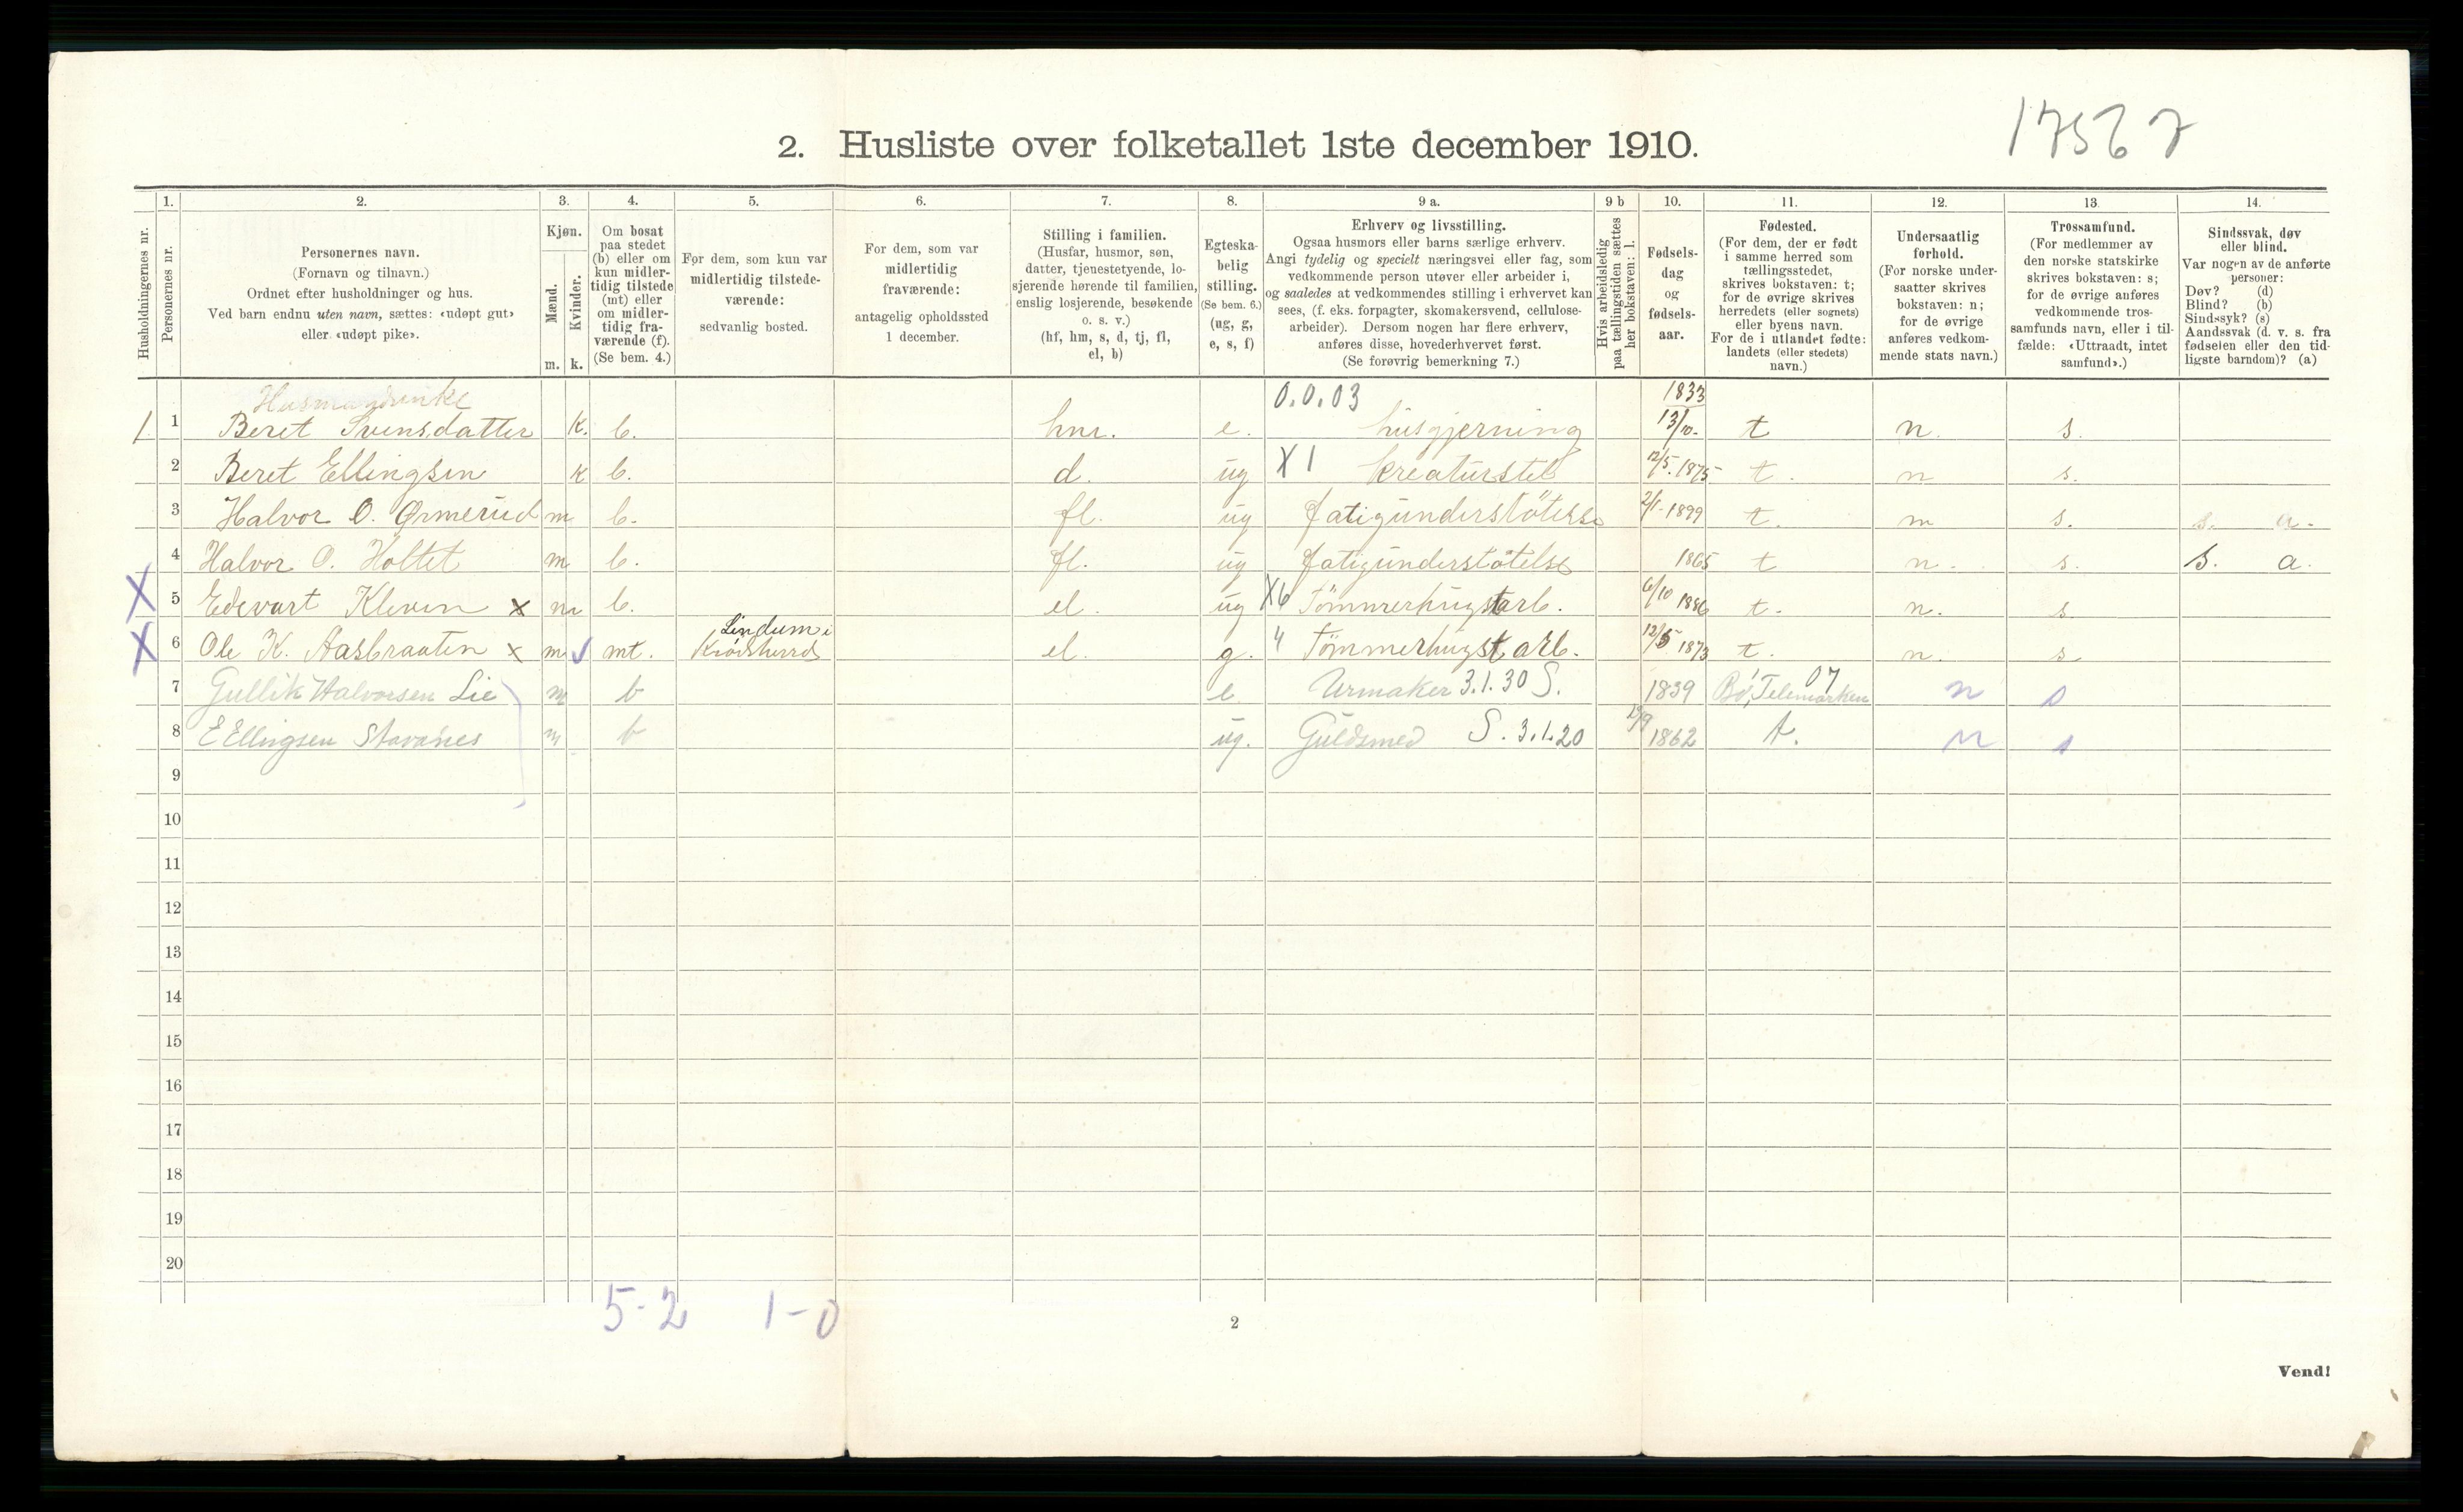 17567
2. Husliste over folketallet 1ste december 1910.
Husholdningernes nr.
1. Personernes nr.
2. Personernes navn.
(Fornavn og tilnavn.)
Ordnet efter husholdninger og hus.
Ved barn endnu uten navn, sættes: «udøpt gut»
eller «udøpt pike».
3. Kjøn.
Mænd. m.
Kvinder. k.
4. Om bosat
paa stedet
(b) eller om
kun midler-
tidig tilstede
(mt) eller
om midler-
tidig fra-
værende (f).
(Se bem. 4.)
5. For dem, som kun var
midlertidig tilstede-
værende:
sedvanlig bosted.
6. For dem, som var
midlertidig
fraværende:
antagelig opholdssted
1 december.
7. Stilling i familien.
(Husfar, husmor, søn,
datter, tjenestetyende, lo-
sjerende hørende til familien,
enslig losjerende, besøkende
o. s. v.)
(hf, hm, s, d, tj, fl,
el, b)
8. Egteska-
belig
stilling.
(Se bem. 6.)
(ug, g,
e, s, f)
9 a. Erhverv og livsstilling.
Ogsaa husmors eller barns særlige erhverv.
Angi tydelig og specielt næringsvei eller fag, som
vedkommende person utøver eller arbeider i,
og saaledes at vedkommendes stilling i erhvervet kan
sees, (f. eks. forpagter, skomakersvend, cellulose-
arbeider). Dersom nogen har flere erhverv,
anføres disse, hovederhvervet først.
(Se forøvrig bemerkning 7.)
9 b Hvis arbeidsledig
paa tællingstiden sættes
her bokstaven: l.
10. Fødsels-
dag
og
fødsels-
aar.
11. Fødested.
(For dem, der er født
i samme herred som
tællingsstedet,
skrives bokstaven: t;
for de øvrige skrives
herredets (eller sognets)
eller byens navn.
For de i utlandet fødte:
landets (eller stedets)
navn.)
12. Undersaatlig
forhold.
(For norske under-
saatter skrives
bokstaven: n;
for de øvrige
anføres vedkom-
mende stats navn.)
13. Trossamfund.
(For medlemmer av
den norske statskirke
skrives bokstaven: s;
for de øvrige anføres
vedkommende tros-
samfunds navn, eller i til-
fælde: «Uttraadt, intet
samfund».)
14. Sindssvak, døv
eller blind.
Var nogen av de anførte
personer:
Døv? (d)
Blind? (b)
Sindssyk? (s)
Aandssvak (d. v. s. fra
fødselen eller den tid-
ligste barndom)? (a)
Husmandsenke 0.0.03 1833
1 1 Beret Svensdatter k. b. hm. e. husgjerning 13/10- t n. s.
2 Beret Ellingsen k b. d. ug X1 kreaturstel 12/5. 1875 t. n s.
3 Halvor O. Ørmerud m b. fl. ug fatigunderstötelse 2/1- 1899 t. n s. s. a.
4 Halvor O. Holtet m b. fl. ug fatigunderstötelse 1865 t n. s. s. a.
X 5 Edevart Kleven x m b. el. ug X6 Tömmerhugstarb. 6/10 1886 t. n. s.
Lindum i
X 6 Ole K. Aasbraaten x m ✓ mt. Krödsherred el. g. " Tömmerhugstarb. 12/5 1873 t. n. s
7 Gullik Halvorsen Lie m b e Urmaker 3.1.30 S. 1839 Bö, Telemarken 07 n s
8 E Ellingsen Stavnes m b ug. Guldsmed S. 3.1.20 19/9 1862 t. n s
9
10
11
12
13
14
15
16
17
18
19
20
5-2 1-0
2
Vend!